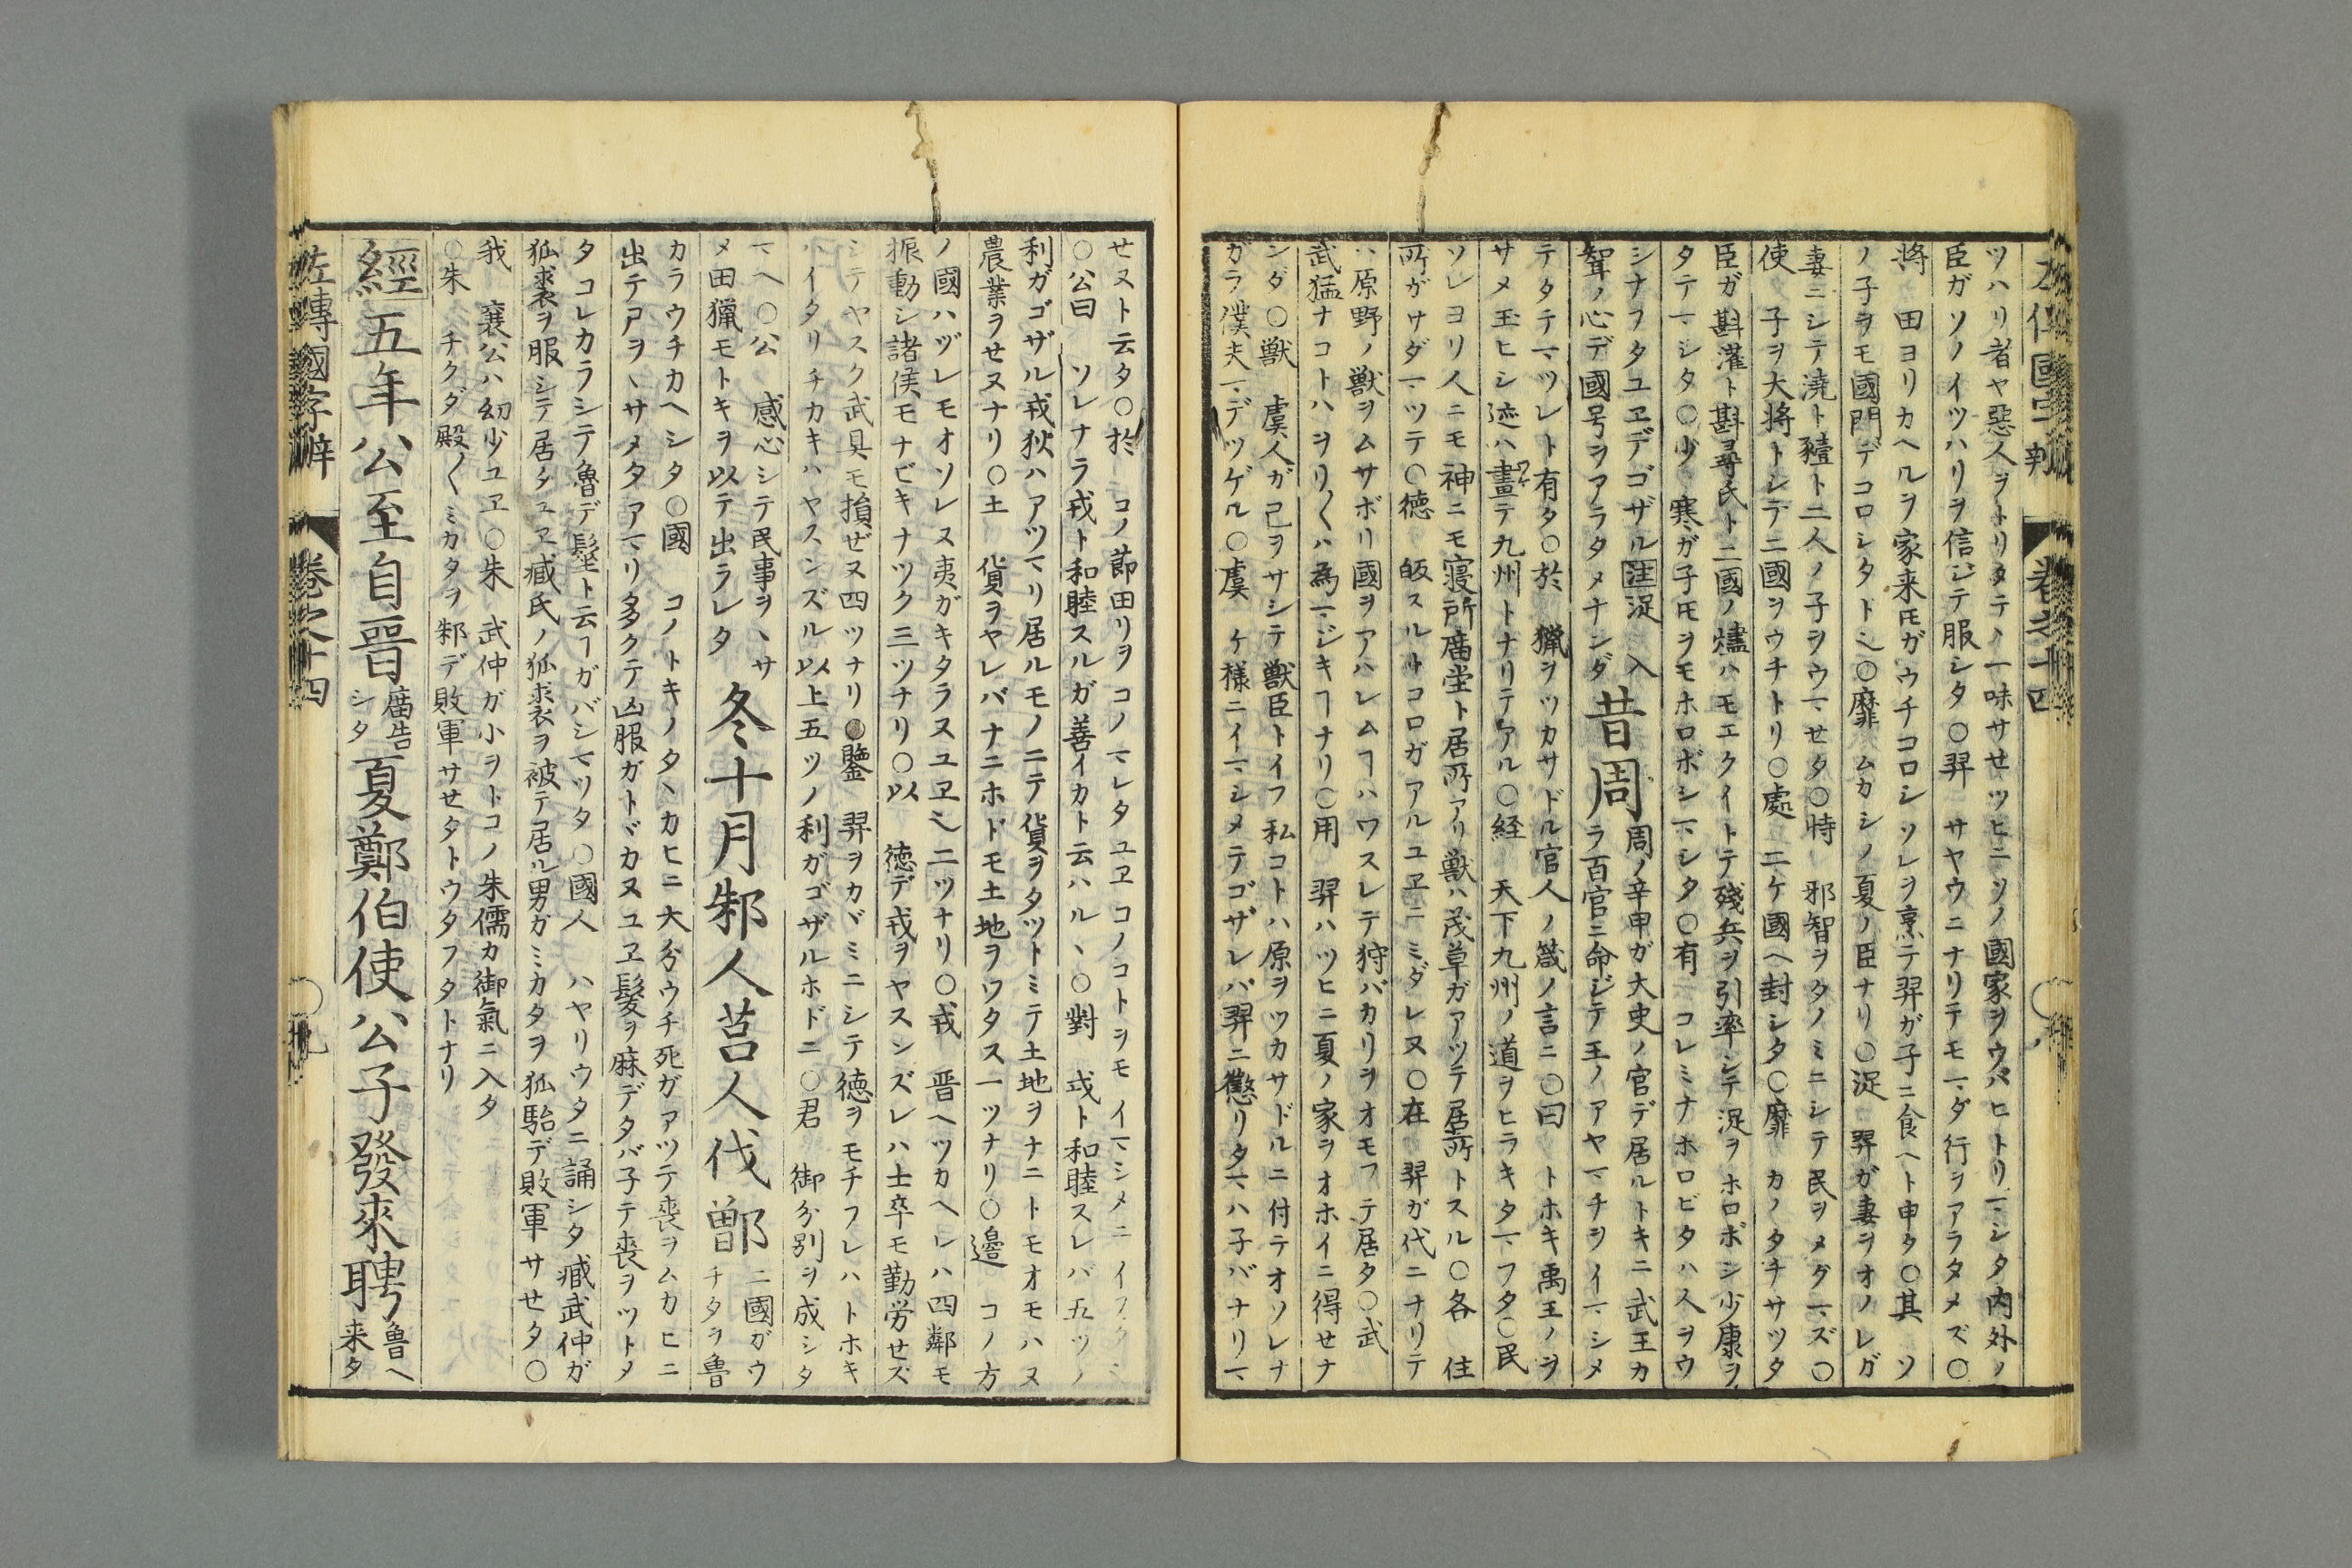 ツハリ者ヤ惡人ヲトリタテヽ一味サセツヒニソノ國家ヲウバヒトリマシタ内外ノ
臣ガソノイツハリヲ信ジテ服シタ○羿　サヤウニナリテモマダ行ヲアラタメズ○
將　田ヨリカヘルヲ家来𪜈ガウチコロシソレヲ烹テ羿ガ子ニ食ヘト申タ○其　ソ
ノ子ヲモ國門デコロシタドヘ○靡　ムカシノ夏ノ臣ナリ○浞　羿ガ妻ヲオノレガ
妻ニシテ澆ト豷ト二人ノ子ヲウマせタ○恃　邪智ヲタノミニシテ民ヲメグマズ○
使　子ヲ大將トシテ二國ヲウチトリ○處　二ケ國ヘ封シタ○靡　カノタチサツタ
臣ガ斟灌ト斟尋氏ト二國ノ燼ハモエクイトテ殘兵ヲ引率シテ浞ヲホロボシ少康ヲ
タテマシタ○少　寒ガ子𪜈ヲモホロボシマシタ○有　コレミナホロビタハ人ヲウ
シナフタユヱデゴザル注浞　入
聟ノ心デ國号ヲアラタメナンダ
昔周
周ノ辛申ガ大史ノ官デ居ルトキニ武王カ
ラ百官ニ命ジテ王ノアヤマチヲイマシメ
テタテマツレト有タ○於　獵ヲツカサドル官人ノ箴ノ言ニ○曰　トホキ禹王ノヲ
サメ玉ヒシ迹ハ畫テ九州トナリテアル○経　天下九州ノ道ヲヒラキタマフタ○民
ソレヨリ人ニモ神ニモ寢所庿堂ト居所アリ獣ハ茂草ガアツテ居所トスル○各　住
所ガサダマツテ○徳　皈スルトコロガアルユヱニミダレヌ○在　羿ガ代ニナリテ
ハ原野ノ獣ヲムサボリ國ヲアハレムヿハワスレテ狩バカリヲオモフテ居タ○武
武猛ナコトハヲリ〳〵ハ為マジキヿナリ○用　羿ハツヒニ夏ノ家ヲオホイニ得せナ
シダ○獣　虞人ガ己ヲサシテ獣臣トイフ私コトハ原ヲツカサドルニ付テオソレナ
ガラ僕夫マデツゲル○虞　ケ様ニイマシメテゴザレバ羿ニ懲リタマハ子バナリマ
せヌト云タ○於　コノ節田リヲコノマレタユヱコノコトヲモイマシメニイフ
○公曰　ソレナラ戎ト和睦スルガ善イカト云ハルヽ○對　戎ト和睦スレバ五ツノ
利ガゴザル戎狄ハアツマリ居ルモノニテ貨ヲタツトミテ土地ヲナニトモオモハヌ
農業ヲせヌナリ○土　貨ヲヤレバナニホドモ土地ヲワタス一ツナリ○邊　コノ方
ノ國ハヅレモオソレヌ夷ガキタラヌユヱヘ二ツナリ○戎　晋ヘツカヘレハ四鄰モ
振動シ諸侯モナビキナツク三ツナリ○以　徳デ戎ヲヤスンズレハ士卒モ勤労せズ
シテヤスク武具モ損ぜヌ四ツナリ○鑒　羿ヲカヾミニシテ徳ヲモチフレハトホキ
ハイタリチカキハヤスンズル以上五ツノ利ガゴザルホドニ○君　御分別ヲ成シタ
マヘ○公　感心シテ民事ヲヽサ
メ田獵モトキヲ以テ出ラレタ
冬十月邾人莒人伐鄫
二國ガウ
チタラ魯
カラウチカヘシタ○國　コノトキノタヽカヒニ大分ウチ死ガアツテ喪ヲムカヒニ
出テコヲヽサメタアマリ多クテ凶服ガトヾカヌユヱ髪ヲ麻デタバ子テ喪ヲツトメ
タコレカラシテ魯デ髽ト云ヿガバシマツタ○國人　ハヤリウタニ誦シタ臧武仲ガ
狐裘ヲ服シテ居タユヱ臧氏ノ狐裘ヲ被テ居ル男ガミカタヲ狐駘デ敗軍サセタ○
我　襄公ハ幼少ユヱ○朱　武仲ガ小ヲトコノ朱儒カ御氣ニ入タ
○朱　チクダ殿〳〵ミカタヲ邾デ敗軍サせタトウタフタトナリ
經五年公至自晋
庿告
シタ
夏鄭伯使公子發來聘
魯ヘ
来タ
左傳國字辨　卷之十四　九